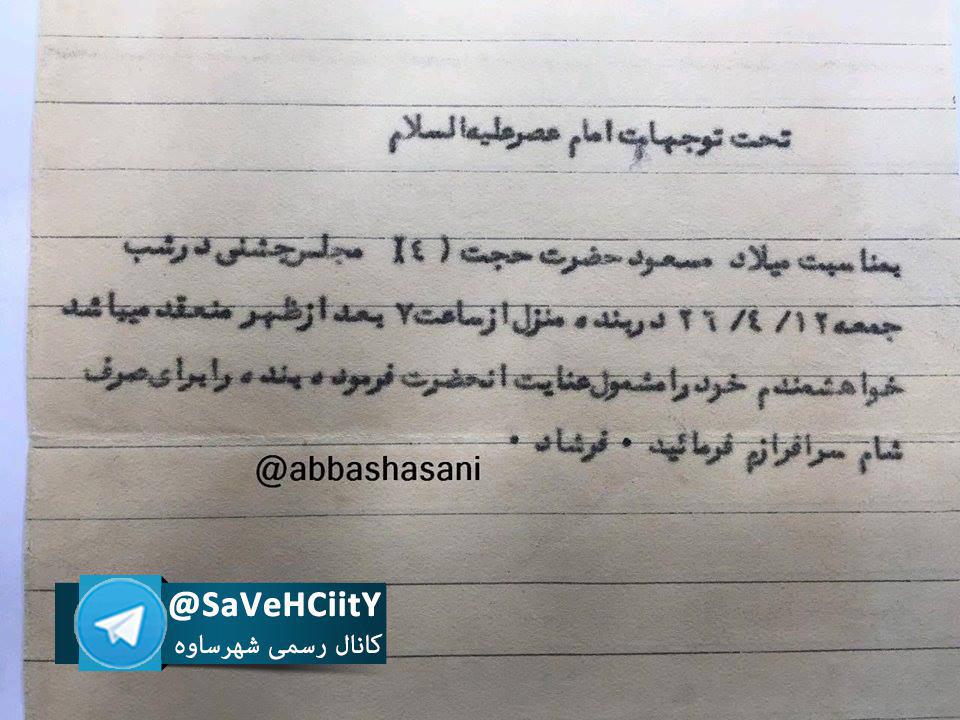 تحت توجهات امام عصر علیه‌السلام
بمناسبت میلاد مسعود حضرت حجت (٤) مجلس جشنی در شب
جمعه ١٢/ ٤/ ٢٦ در بنده منزل از ساعت ٧ بعد از ظهر منعقد میباشد
خواهشمندم خود را مشمول عنایت انحضرت فرموده بنده را برای صرف
شام سرافرازم فرمائید • فرشاد •
@abbashasani
@SaVeHCiitY
کانال رسمی شهرساوه